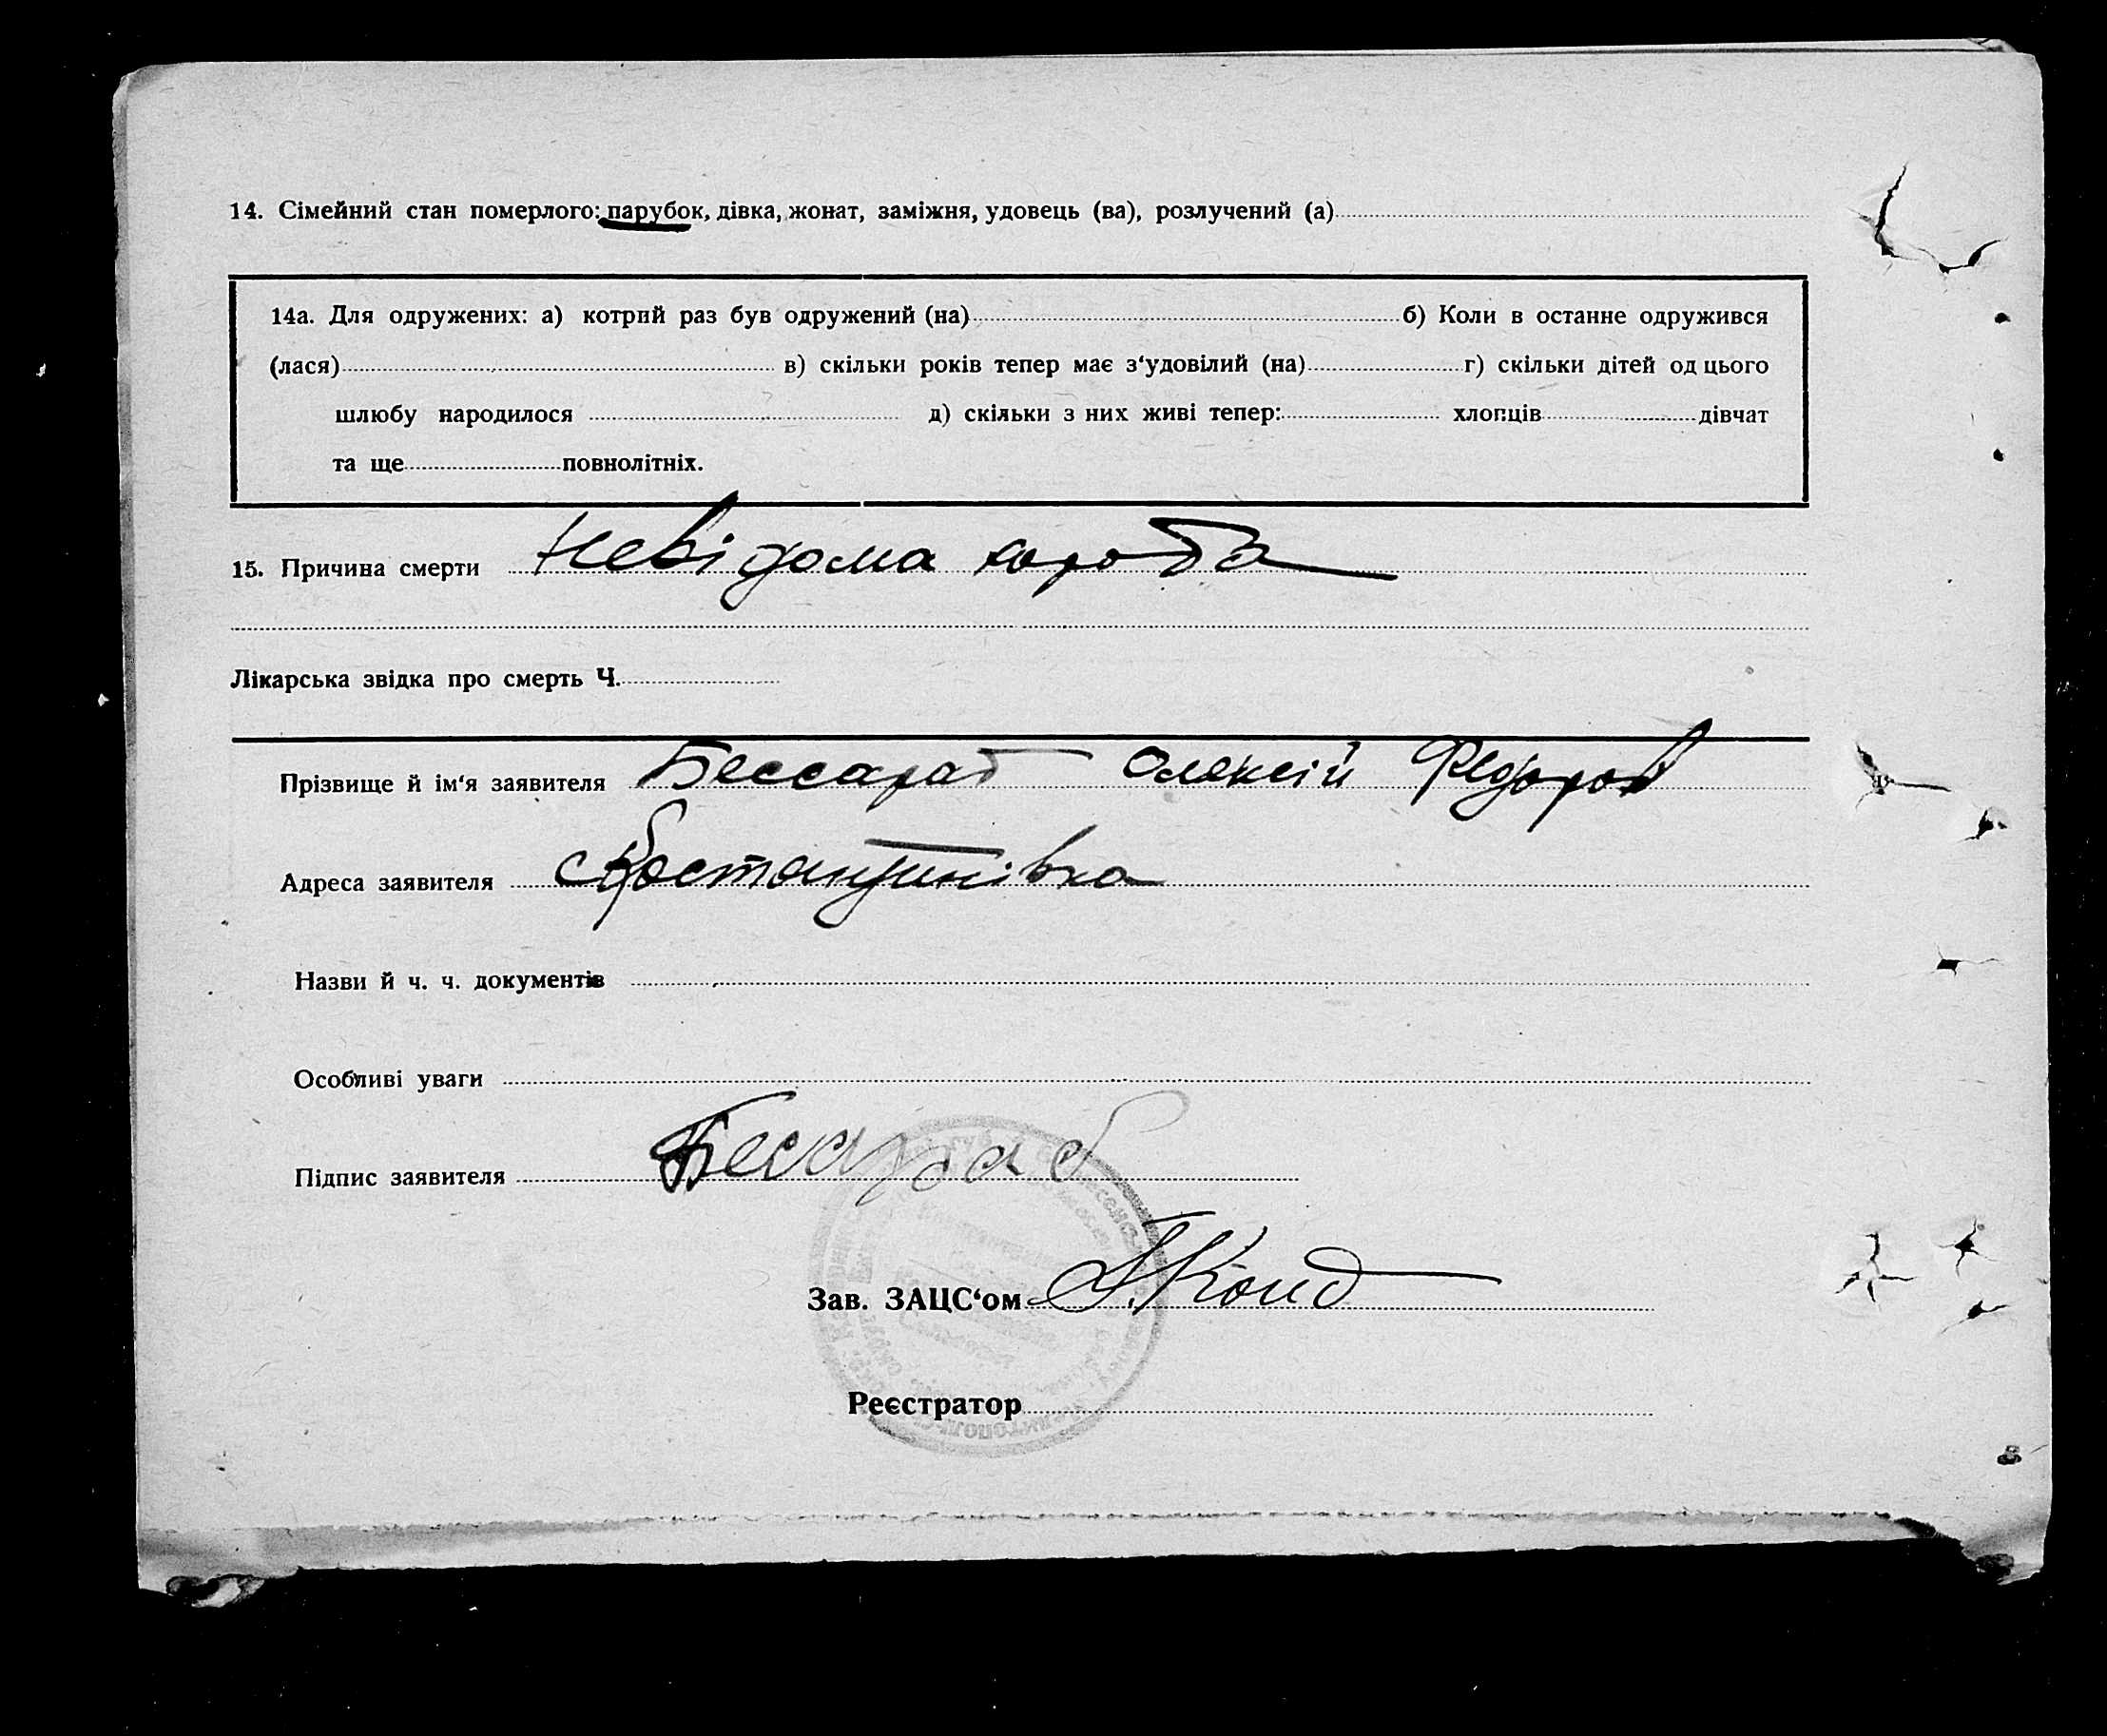 14. Сімейний стан померлого: парубок, дівка, жонат, заміжня, удовець (ва), розлучений (а)
14а. Для одружених: а) котрий раз був одружений (на) б) Коли в останне одружився
(лася) в) скільки років тепер має з‘удовілий (на) г) скільки дітей од цього
шлюбу народилося д) скільки з них живі тепер: хлопців дівчат
та ще повнолітніх.
15. Причина смерти Невідома хороба
Лікарська звідка про смерть Ч.
Прізвище й ім‘я заявителя Бессараб Олексій Федоров
Адреса заявителя с Костантинівка
Назви й ч. ч. документів
Особливі уваги
Підпис заявителя Бесараб
Зав. ЗАЦС‘ом
Реєстратор